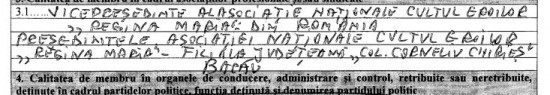 3.1.....VICEPREȘEDINTE AL ASOCIAȚIEI NAȚIONALE CULTUL EROILOR
,,REGINA MARIA" DIN ROMÂNIA
PREȘEDINTELE ASOCIAȚIEI NAȚIONALE CULTUL EROILOR
,,REGINA MARIA"- FILIALA JUDEȚEANĂ ,,COL. CORNELIU CHIRIEȘ"
BACĂU
4. Calitatea de membru în organele de conducere, administrare și control, retribuite sau neretribuite,
deținute în cadrul partidelor politice, funcția deținută și denumirea partidului politic